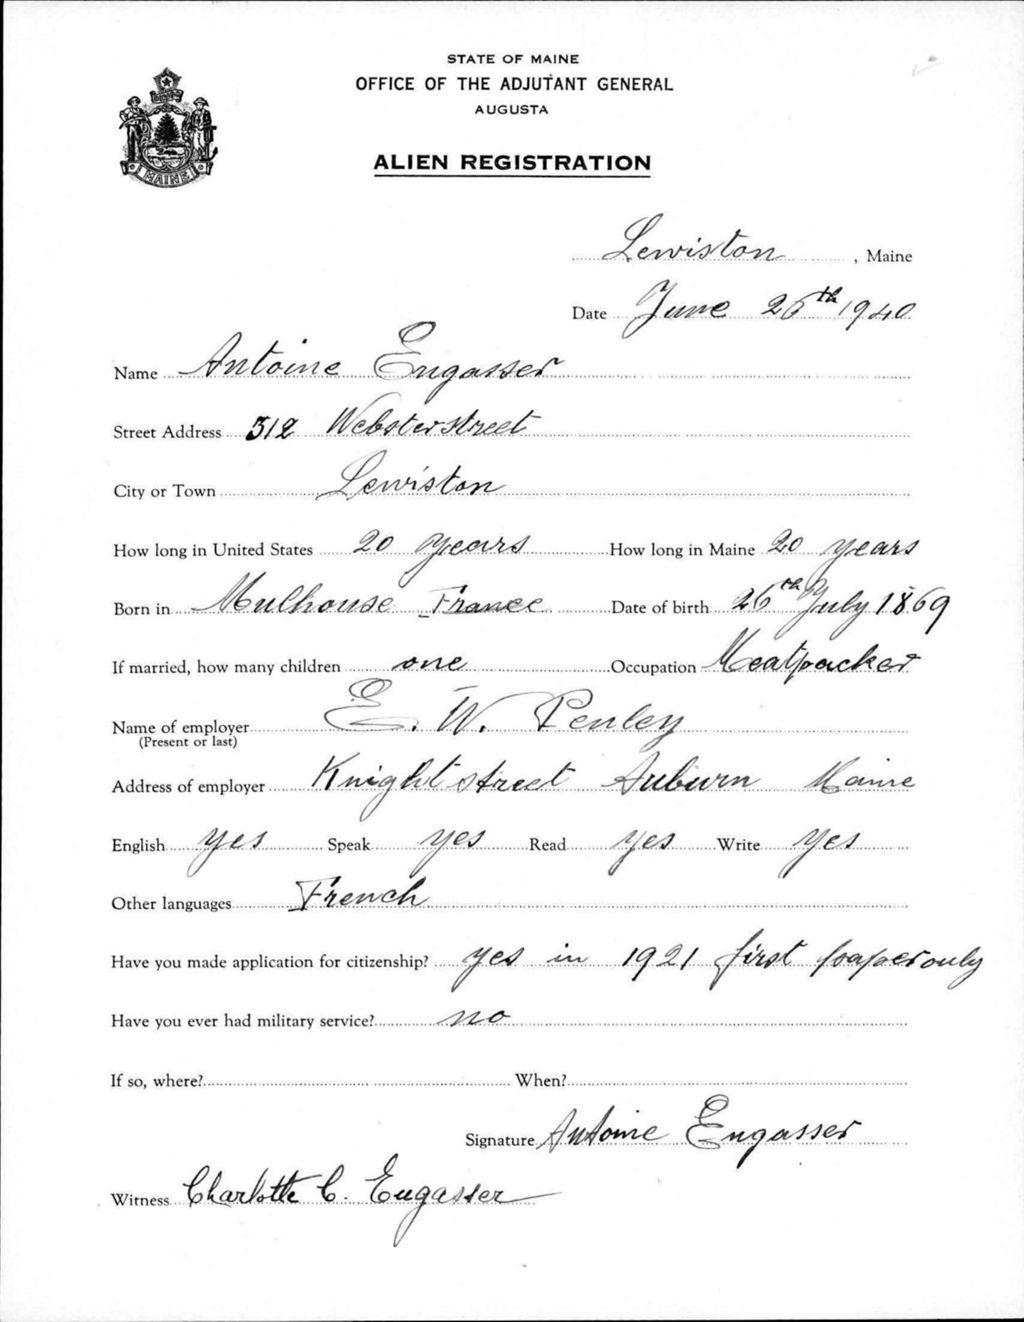 STATE OF MAINE
OFFICE OF THE ADJUTANT GENERAL
AUGUSTA
ALIEN REGISTRATION
MAINE
Lewiston, Maine
Date June 26th 1940
Name Antoine Engasser
Street Address 312 Webster street
City or Town Lewiston
How long in United States 20 years How long in Maine 20 years
Born in Mulhouse France Date of birth 26th July 1869
If married, how many children one Occupation Meatpacker
Name of employer E. W. Penley
(Present or last)
Address of employer Knight street Auburn Maine
English yes Speak yes Read yes Write yes
Other languages French
Have you made application for citizenship? yes in 1921 first paper only
Have you ever had military service? no
If so, where? When?
Signature Antoine Engasser
Witness Charlotte C. Engasser